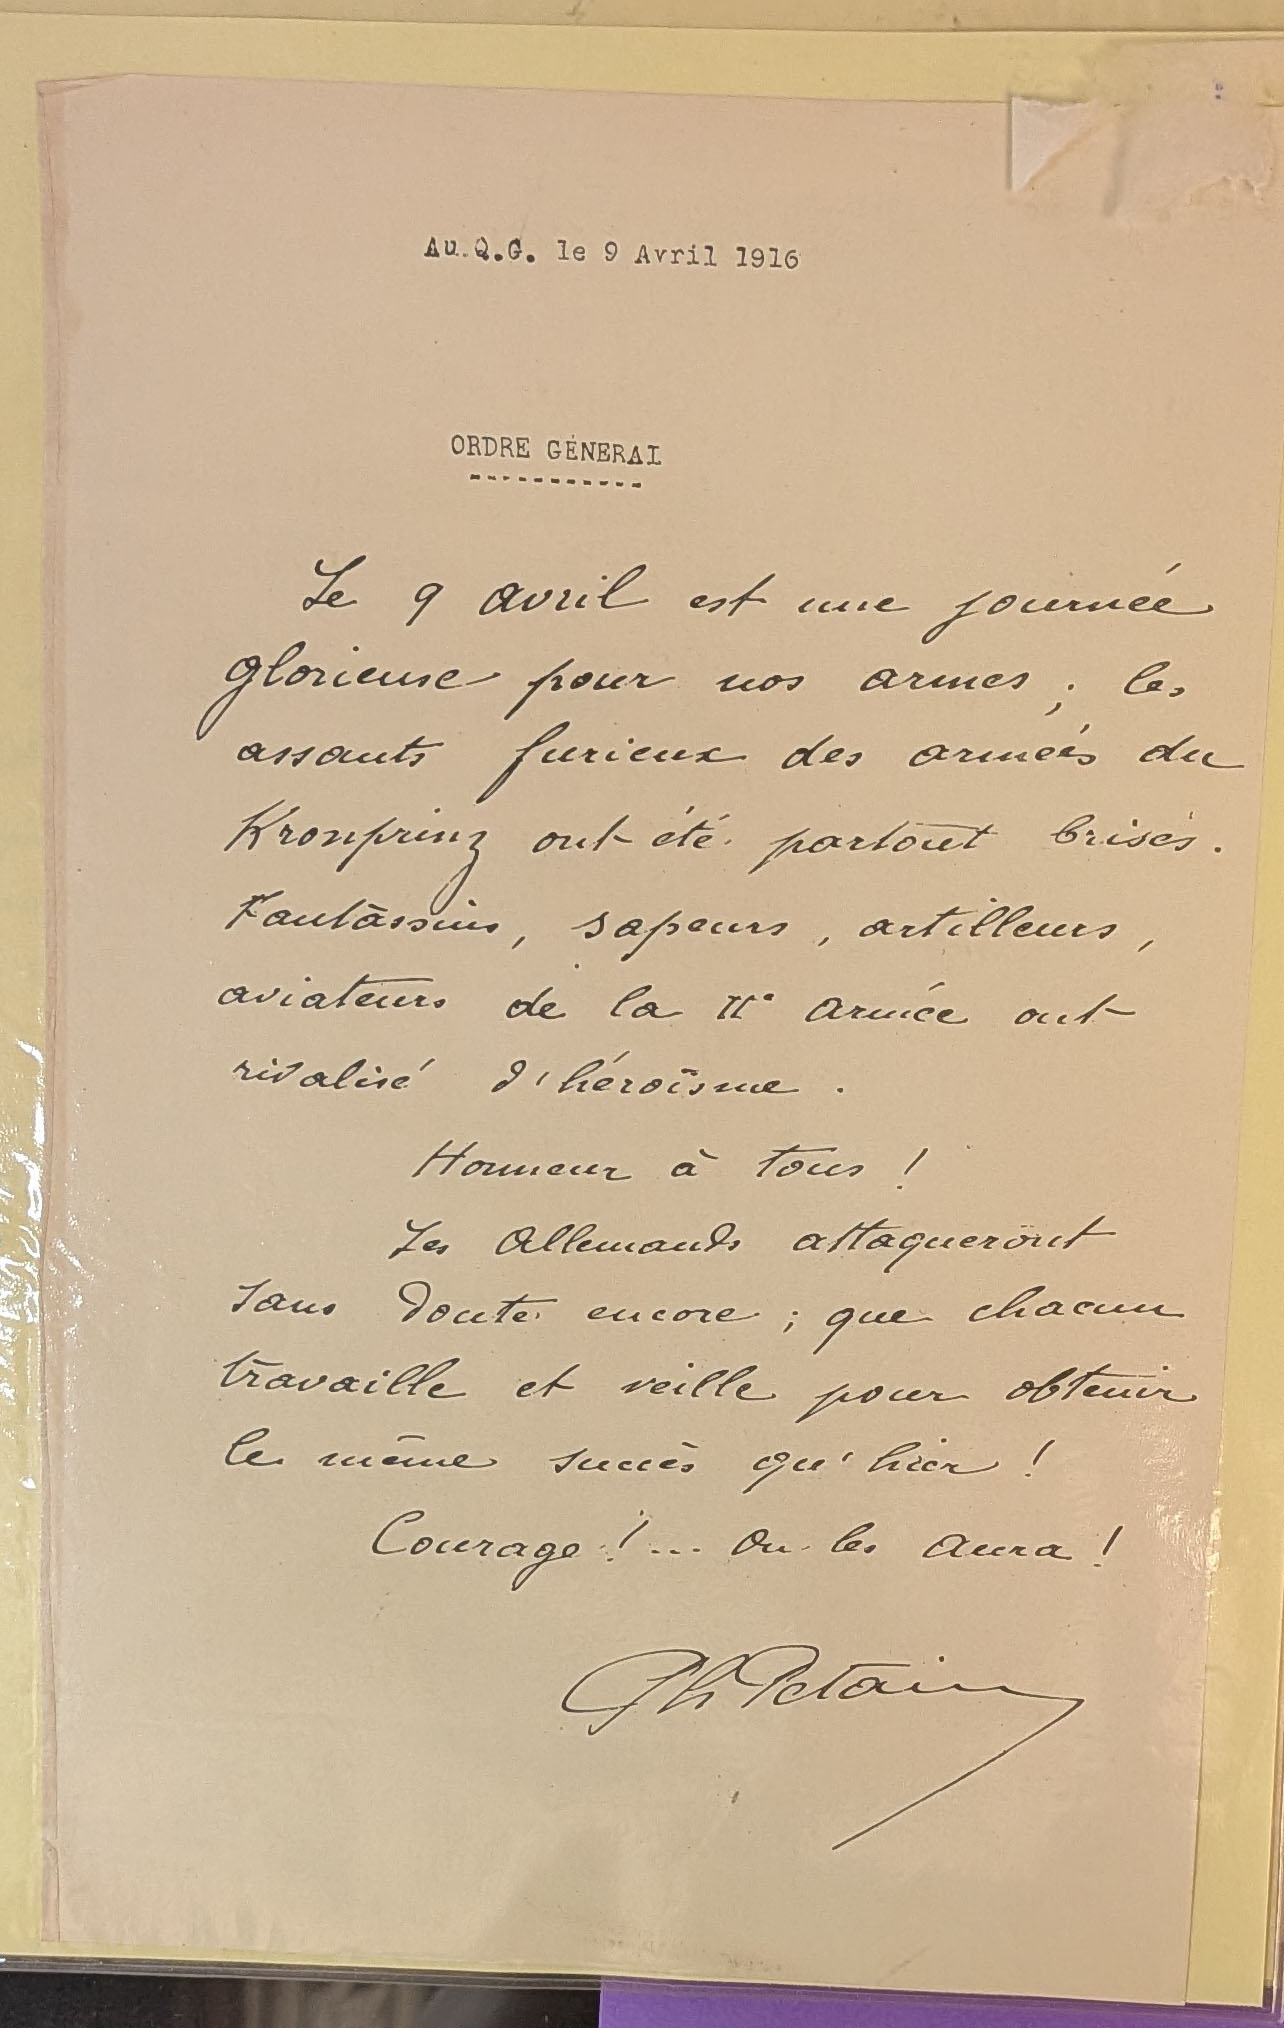 Au.Q.G. le 9 Avril 1916
ORDRE GÉNERAL
Le 9 avril est une journée
glorieuse pour nos armes ; les
assauts furieux des armées du
Kronprinz ont été partout brisés.
Fantassins, sapeurs, artilleurs,
aviateurs de la IIe armée ont
rivalisé d'héroïsme.
Honneur à tous !
Les Allemands attaqueront
sans doute encore ; que chacun
travaille et veille pour obtenir
le même succès qu'hier !
Courage !... On les aura !
Ph Petain